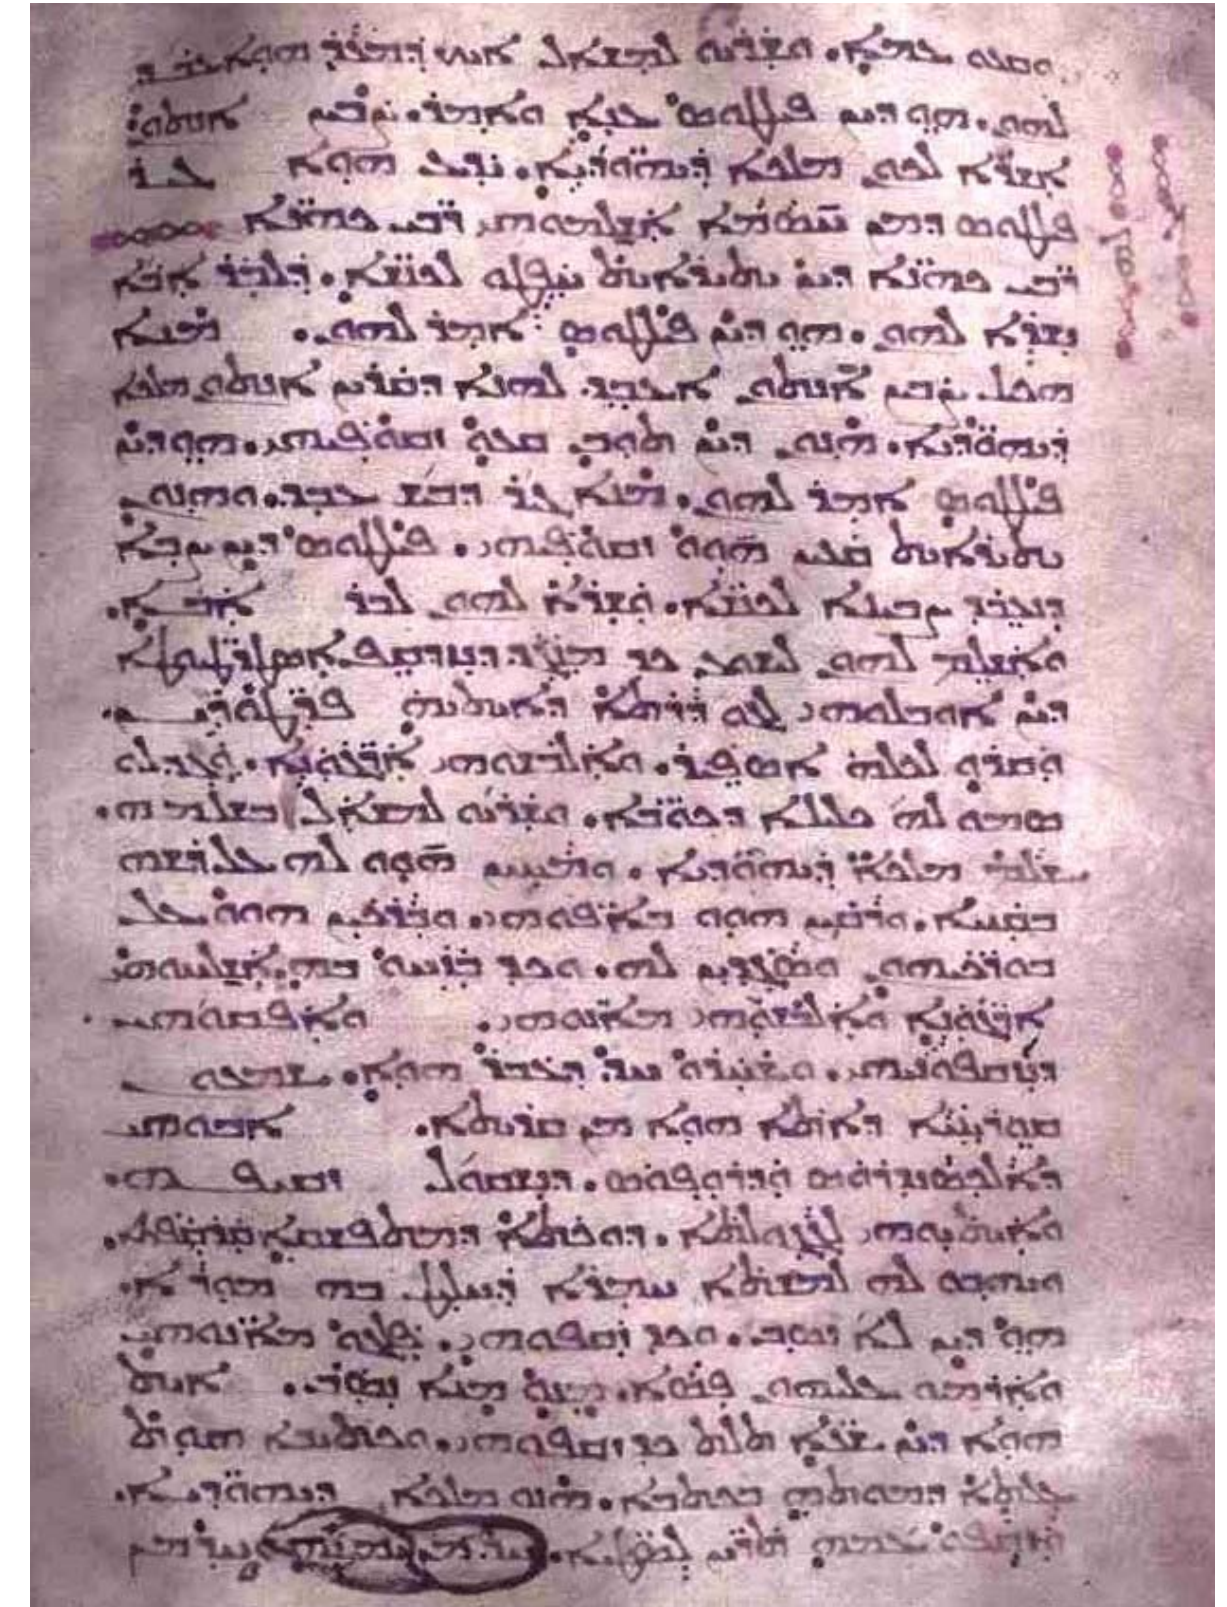 ܘܩܥܘ ܥܡܐ. ܘܫܪܝܘ ܠܡܫܐܠ ܐܝܟ ܕܡܥܕ ܗܘܐ ܥܒܕ
ܠܗܘܢ. ܗܘ ܕܝܢ ܦܝܠܛܘܣ ܥܢܐ ܘܐܡܪ. ܨܒܝܢ ܐܢܬܘܢ
ܐܫܪܐ ܠܟܘܢ ܡܠܟܐ ܕܝܗܘܕܝܐ. ܝܕܥ ܗܘܐ ܓܝܪ
ܦܝܠܛܘܣ ܕܡܢ ܚܣܡܐ ܐܫܠܡܘܗܝ ܪܒܝ ܟܗܢܐ
ܪܒܝ ܟܗܢܐ ܕܝܢ ܝܬܝܪܐܝܬ ܚܦܛܘ ܠܟܢܫܐ. ܕܠܒܪ ܐܒܐ
ܢܫܪܐ ܠܗܘܢ. ܗܘ ܕܝܢ ܦܝܠܛܘܣ ܐܡܪ ܠܗܘܢ. ܡܢܐ
ܗܟܝܠ ܨܒܝܢ ܐܢܬܘܢ ܐܥܒܕ ܠܗܢܐ ܕܩܪܝܢ ܐܢܬܘܢ ܡܠܟܐ
ܕܝܗܘܕܝܐ. ܗܢܘܢ ܕܝܢ ܬܘܒ ܩܥܘ ܙܩܘܦܝܗܝ. ܗܘ ܕܝܢ
ܦܝܠܛܘܣ ܐܡܪ ܠܗܘܢ. ܡܢܐ ܓܝܪ ܕܒܝܫ ܥܒܕ. ܘܗܢܘܢ
ܝܬܝܪܐܝܬ ܩܥܝܢ ܗܘܘ ܙܩܘܦܝܗܝ. ܦܝܠܛܘܣ ܕܝܢ ܨܒܐ
ܕܢܥܒܕ ܨܒܝܢܐ ܠܟܢܫܐ. ܘܫܪܐ ܠܗܘܢ ܠܒܪ ܐܒܐ.
ܘܐܫܠܡ ܠܗܘܢ ܠܝܫܘܥ ܟܕ ܡܢܓܕ ܕܢܙܕܩܦ ܐܣܛܪܛܝܘܛܐ
ܕܝܢ ܐܘܒܠܘܗܝ ܠܓܘ ܕܪܬܐ ܕܐܝܬܝܗ ܦܪܛܘܪܝܢ.
ܘܩܪܘ ܠܟܠܗ ܐܣܦܝܪ. ܘܐܠܒܫܘܗܝ ܐܪܓܘܢܐ. ܘܓܕܠܘ
ܣܡܘ ܠܗ ܟܠܝܠܐ ܕܟܘܒܐ. ܘܫܪܝܘ ܠܡܫܐܠ ܒܫܠܡܗ.
ܫܠܡ ܡܠܟܐ ܕܝܗܘܕܝܐ. ܘܡܚܝܢ ܗܘܘ ܠܗ ܥܠ ܪܫܗ
ܒܩܢܝܐ. ܘܪܩܝܢ ܗܘܘ ܒܐܦܘܗܝ. ܘܒܪܟܝܢ ܗܘܘ ܥܠ
ܒܘܪܟܝܗܘܢ ܘܣܓܕܝܢ ܠܗ. ܘܟܕ ܒܙܚܘ ܒܗ. ܐܫܠܚܘܗܝ
ܐܪܓܘܢܐ ܘܐܠܒܫܘܗܝ ܡܐܢܘܗܝ. ܘܐܦܩܘܗܝ
ܕܢܙܩܦܘܢܝܗܝ. ܘܫܚܪܘ ܚܕ ܕܥܒܪ ܗܘܐ. ܫܡܥܘܢ
ܩܘܪܝܢܝܐ ܕܐܬܐ ܗܘܐ ܡܢ ܩܪܝܬܐ. ܐܒܘܗܝ
ܕܐܠܟܣܢܕܪܘܣ ܘܕܪܘܦܘܣ. ܕܢܫܩܘܠ ܙܩܝܦܗ.
ܘܐܝܬܝܘܗܝ ܠܓܓܘܠܬܐ. ܕܘܟܬܐ ܕܡܬܦܫܩܐ ܩܪܩܦܬܐ.
ܘܝܗܒܘ ܠܗ ܠܡܫܬܐ ܚܡܪܐ ܕܚܠܝܛ ܒܗ ܡܘܪܐ.
ܗܘ ܕܝܢ ܠܐ ܢܣܒ. ܘܟܕ ܙܩܦܘܗܝ. ܦܠܓܘ ܡܐܢܘܗܝ
ܘܐܪܡܝܘ ܥܠܝܗܘܢ ܦܣܐ. ܡܢܘ ܡܢܐ ܢܣܒ. ܐܝܬ
ܗܘܐ ܕܝܢ ܫܥܐ ܬܠܬ ܟܕ ܙܩܦܘܗܝ. ܘܟܬܝܒܐ ܗܘܬ
ܥܠܬܐ ܕܡܘܬܗ ܒܟܬܒܐ. ܗܢܘ ܡܠܟܐ ܕܝܗܘܕܝܐ.
ܘܙܩܦܘ ܥܡܗ ܬܪܝܢ ܠܣܛܝܐ. ܚܕ ܡܢ ܝܡܝܢܗ ܘܚܕ ܡܢ